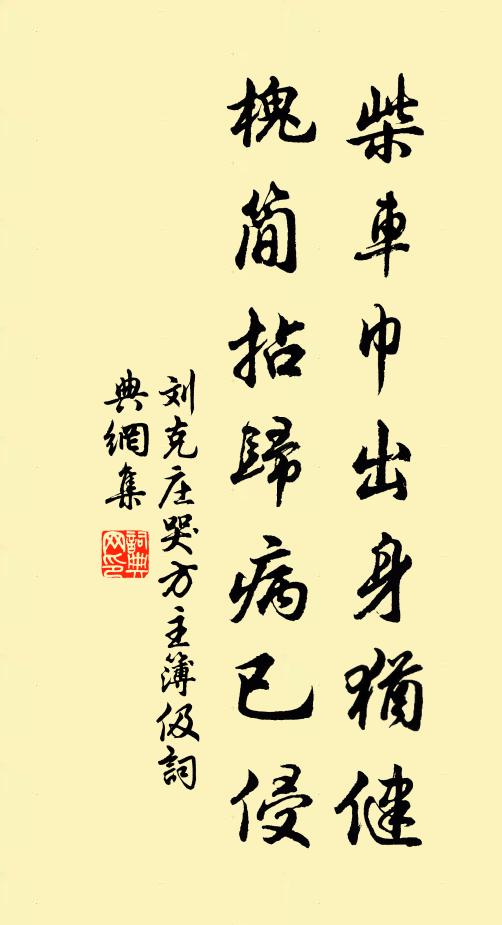 柴車巾出身猶健
槐簡拈歸病已侵
刘克庄哭方主簿伋詞
典網集
詞典网印